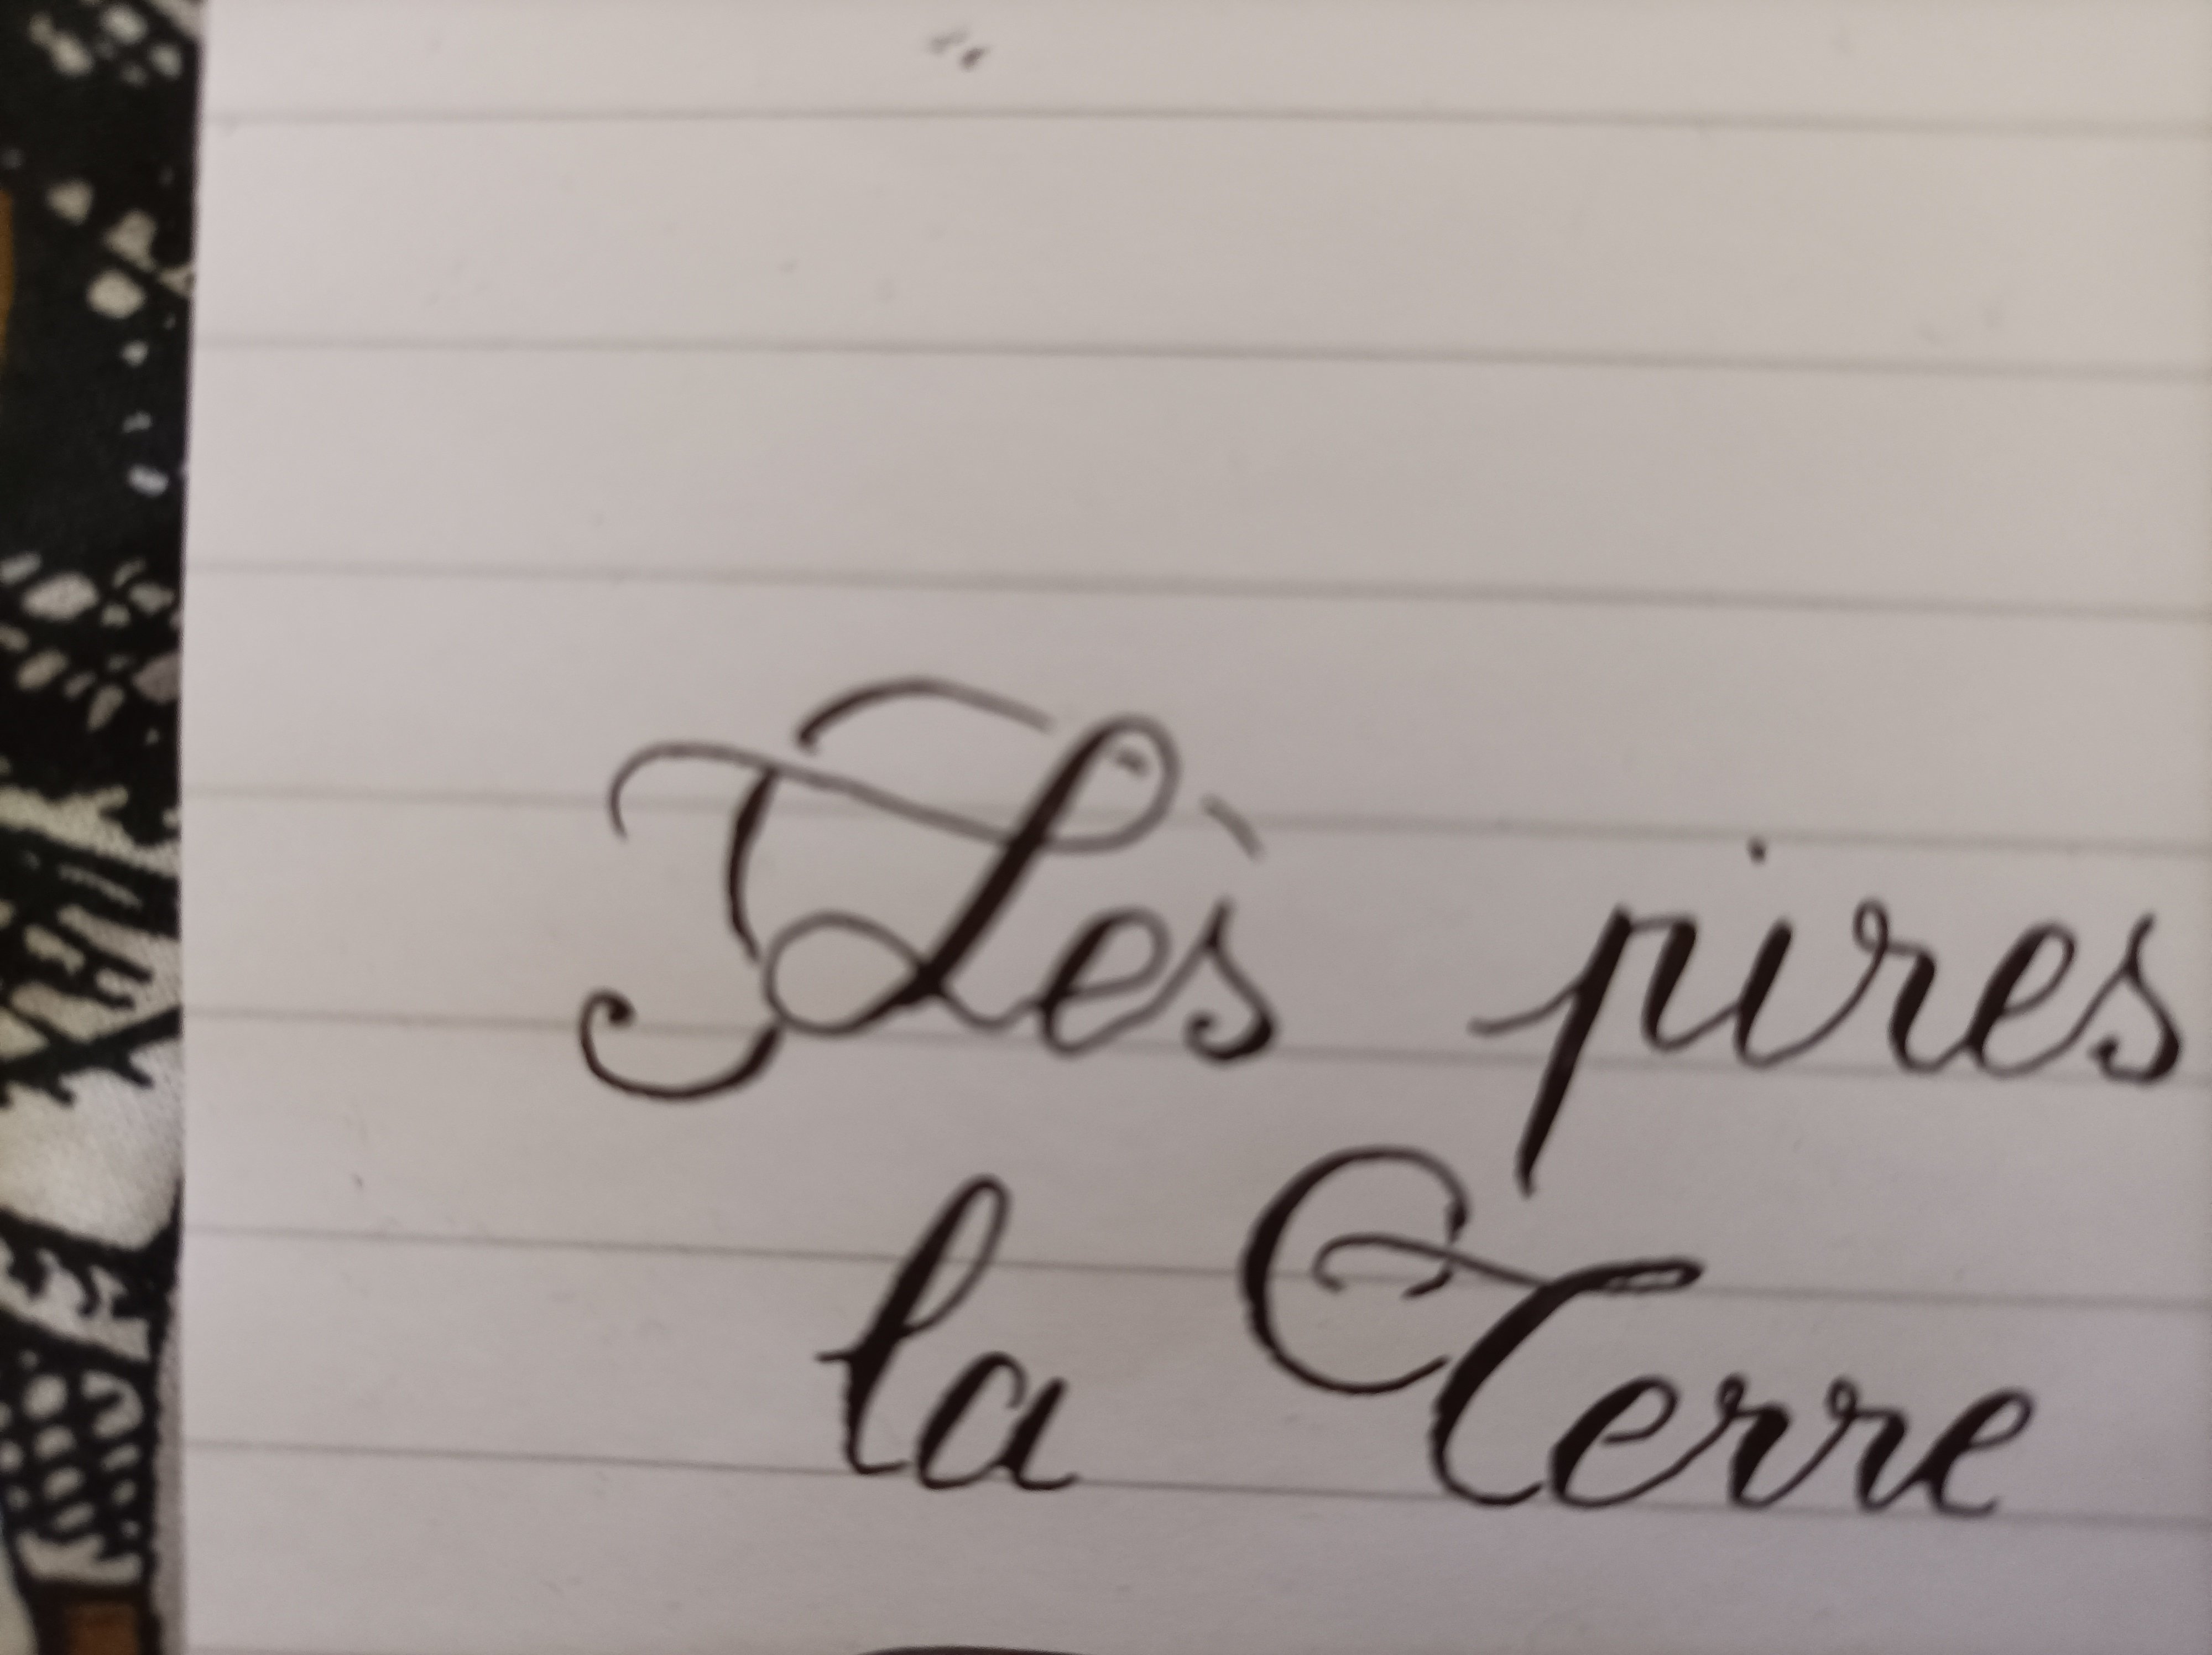 Lès pires
la Terre